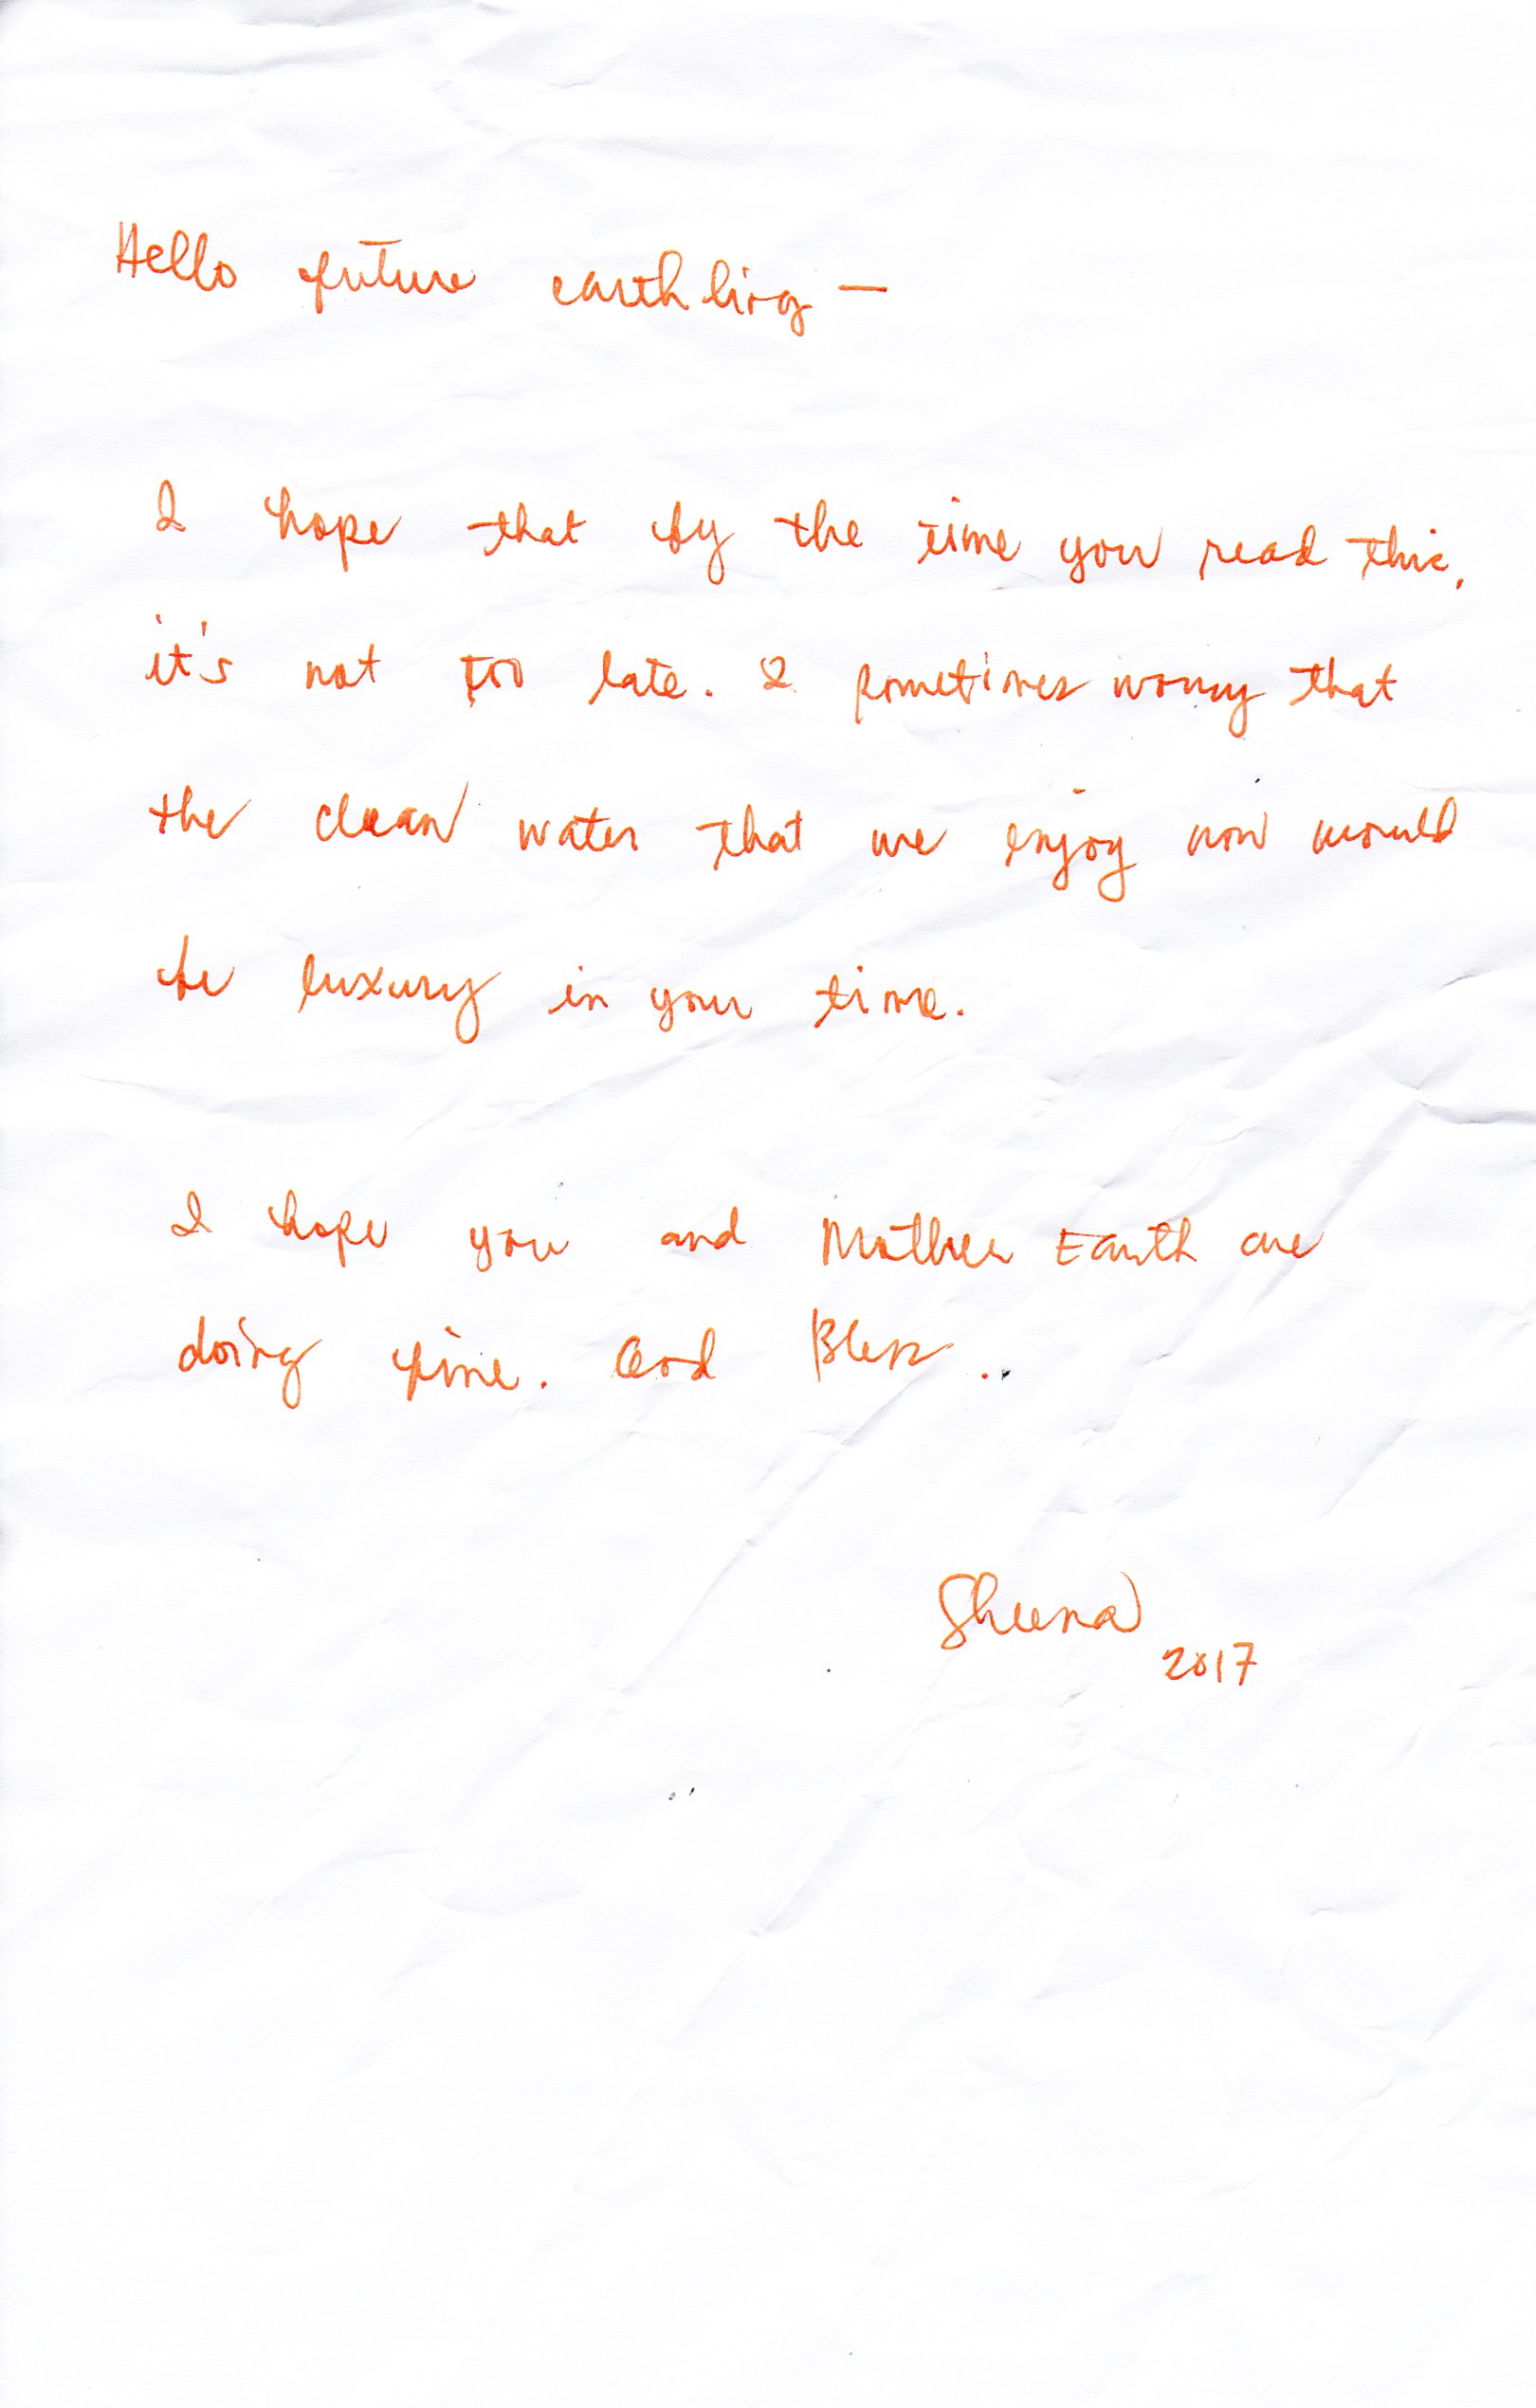 Hello future earthling —
I hope that by the time you read this,
it's not too late. I sometimes worry that
the clean water that we enjoy now would
be luxury in your time.
I hope you and Mother Earth are
doing fine. God Bless..
Sheena
2017